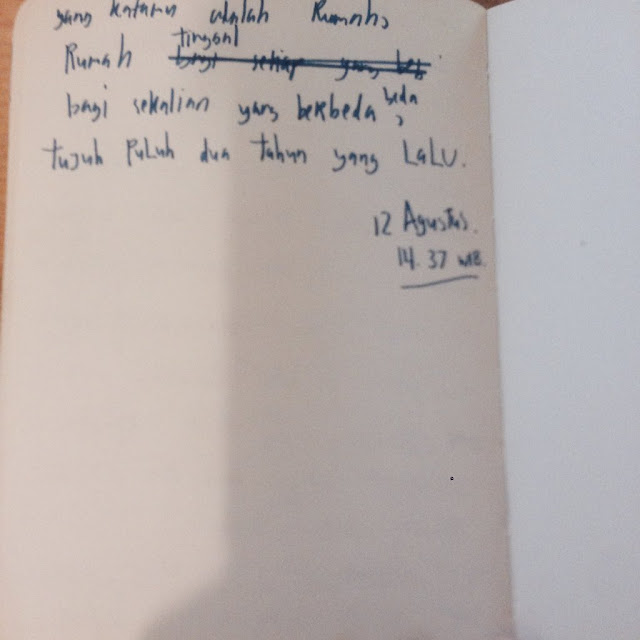 yang katanya adalah Rumah,
Rumah tinggal
bagi sekalian yang berbeda beda,
tujuh Puluh dua tahun yang LaLu.
12 Agustus.
14.37 WIB.